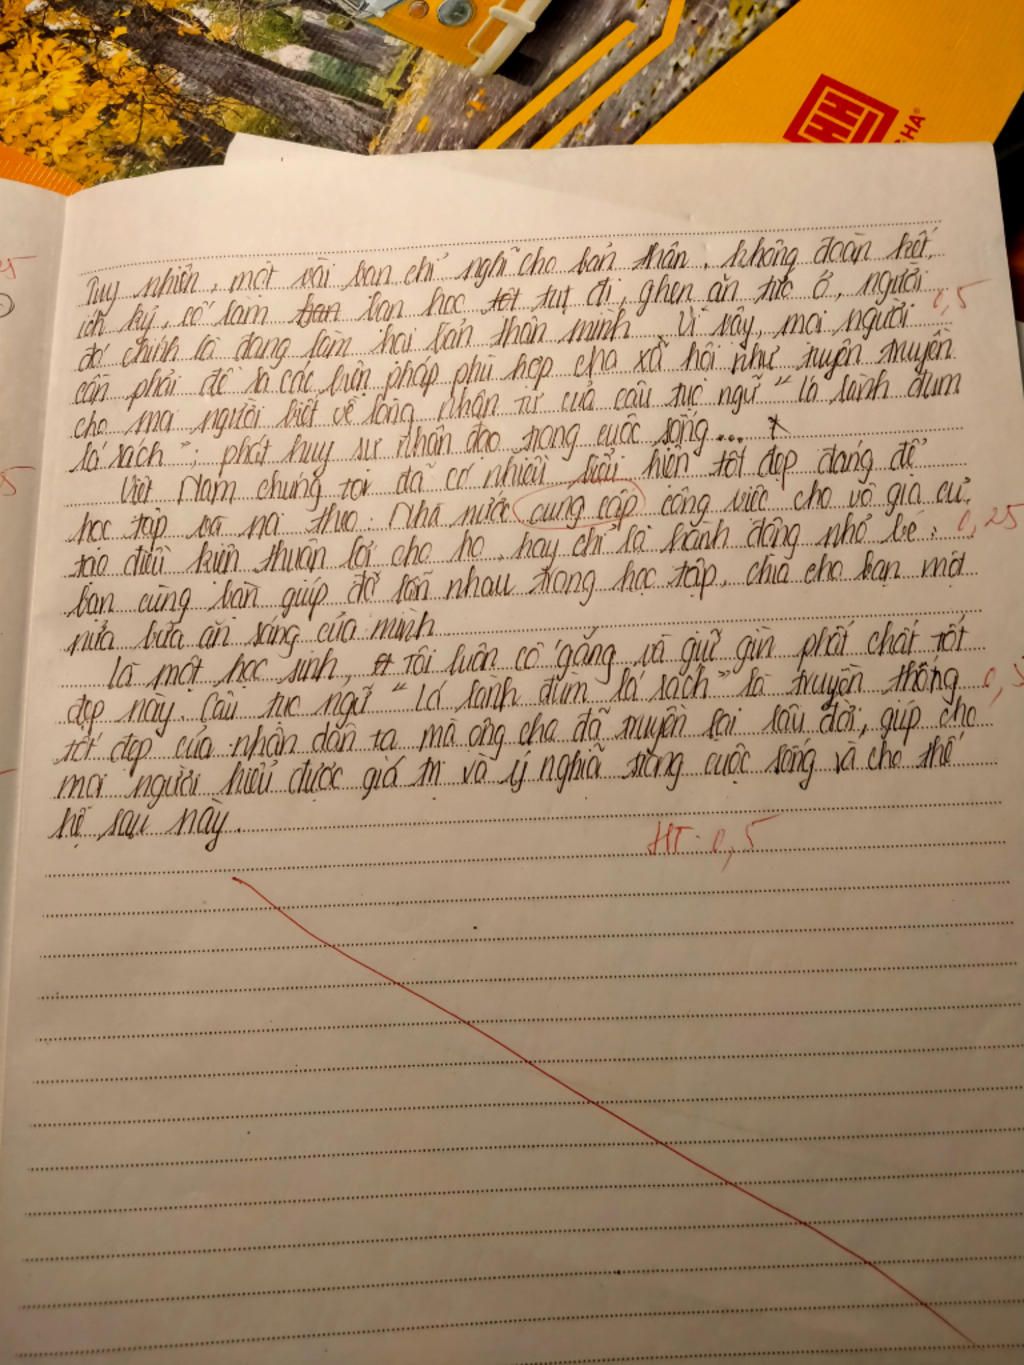 CHA®
Tuy nhiên, một vài bạn chỉ nghĩ cho bản thân, không đoàn kết,
ích kỷ, cố làm bạn bạn học tốt tụt đi, ghen ăn tức ở, người
0,5
đó chính là đang làm hại bản thân mình. Vì vậy, mọi người
cần phải đề ra các biện pháp phù hợp cho xã hội như tuyên truyền
cho mọi người biết về lòng nhân từ của câu tục ngữ "Lá lành đùm
lá rách"; phát huy sự nhân đạo trong cuộc sống...
Việt Nam chúng tôi đã có nhiều biểu hiện tốt đẹp đáng để
học tập và noi theo. Nhà nước cung cấp công việc cho vô gia cư,
tạo điều kiện thuận lợi cho họ, hay chỉ là hành động nhỏ bé:
0,25
bạn cùng bàn giúp đỡ lẫn nhau trong học tập, chia cho bạn một
nửa bữa ăn sáng của mình
Là một học sinh, tôi luôn cố gắng và giữ gìn phất chất tốt
đẹp này. Câu tục ngữ "Lá lành đùm lá rách" là truyền thống
tốt đẹp của nhân dân ta mà ông cha đã truyền lại lâu đời, giúp cho
mọi người hiểu được giá trị và ý nghĩa trong cuộc sống và cho thế
hệ sau này.
HT: 0,5